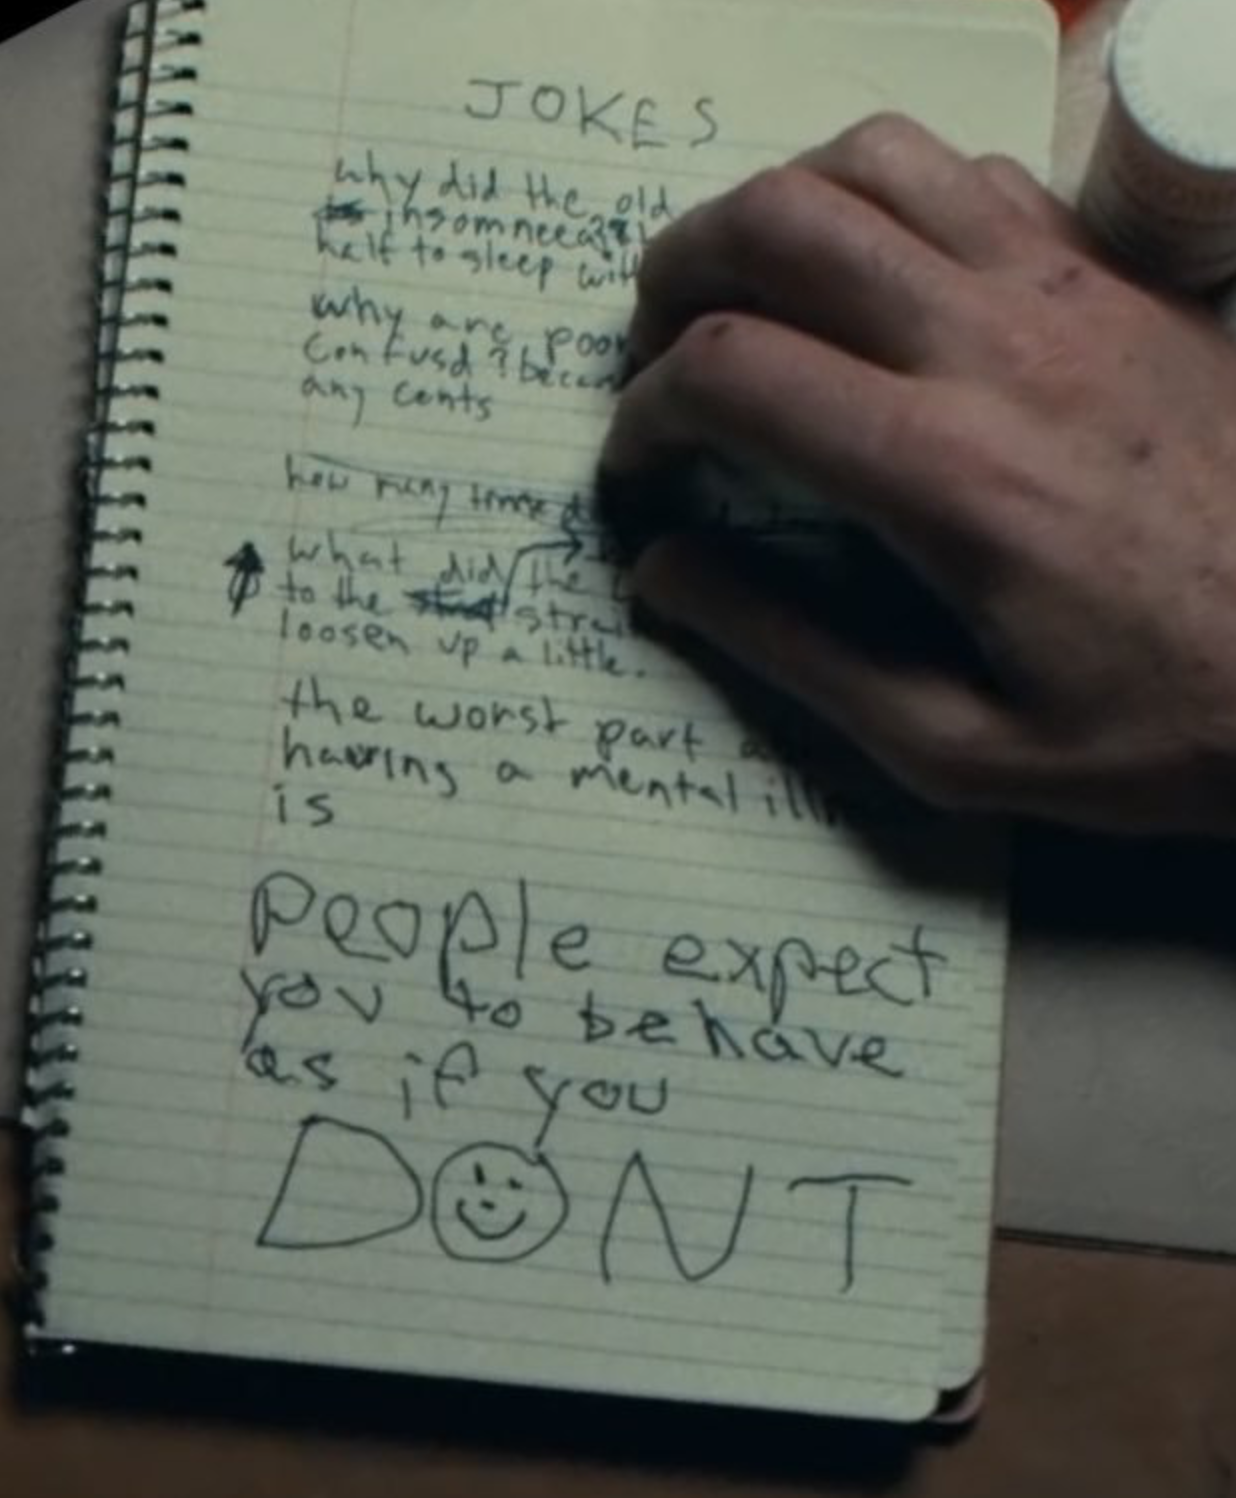 JOKES
why did the old
insomneea??
half to sleep with
why are poor
confusd? becau
any cents
how many
what did the
to the strai
loosen up a little.
the worst part a
having a mental illn
is
People expect
you to behave
as if you
DONT